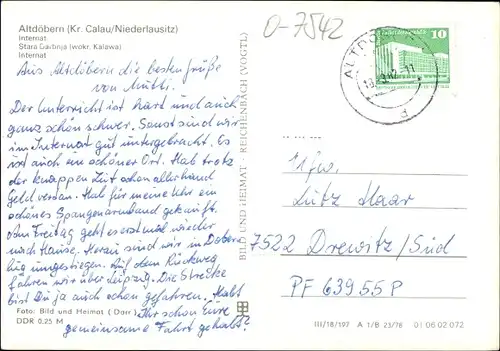 Altdöbern (Kr. Calau/Niederlausitz)
Internat
Stara Darbnja (wokr. Kalawa)
Internat
O-7542
ALTDÖ
10
Aus Altdöbern die besten Grüße
von Mutti.
Der Unterricht ist hart und auch
ganz schön schwer. Sonst sind wir
im Internat gut untergebracht. Es
ist auch ein schöner Ort. Hab trotz
der knappen Zeit schon allerhand
Geld vertan. Hab für meine Uhr ein
schönes Spangenarmband gekauft.
Am Freitag geht es erst mal wieder
nach Hause. Herzu sind wir in Dober-
lug umgestiegen. Auf dem Rückweg
fahren wir über Leipzig. Die Strecke
bist Du ja auch schon gefahren. Habt
Ihr schon Eure
gemeinsame Fahrt gehabt?
Foto: Bild und Heimat (Darr)
DDR 0,25 M
BILD UND HEIMAT · REICHENBACH (VOGTL)
Ufw.
Lutz Haar
7522 Drewitz/Süd
PF 63955P
III/18/197 A 1/B 23/78 01 06 02 072